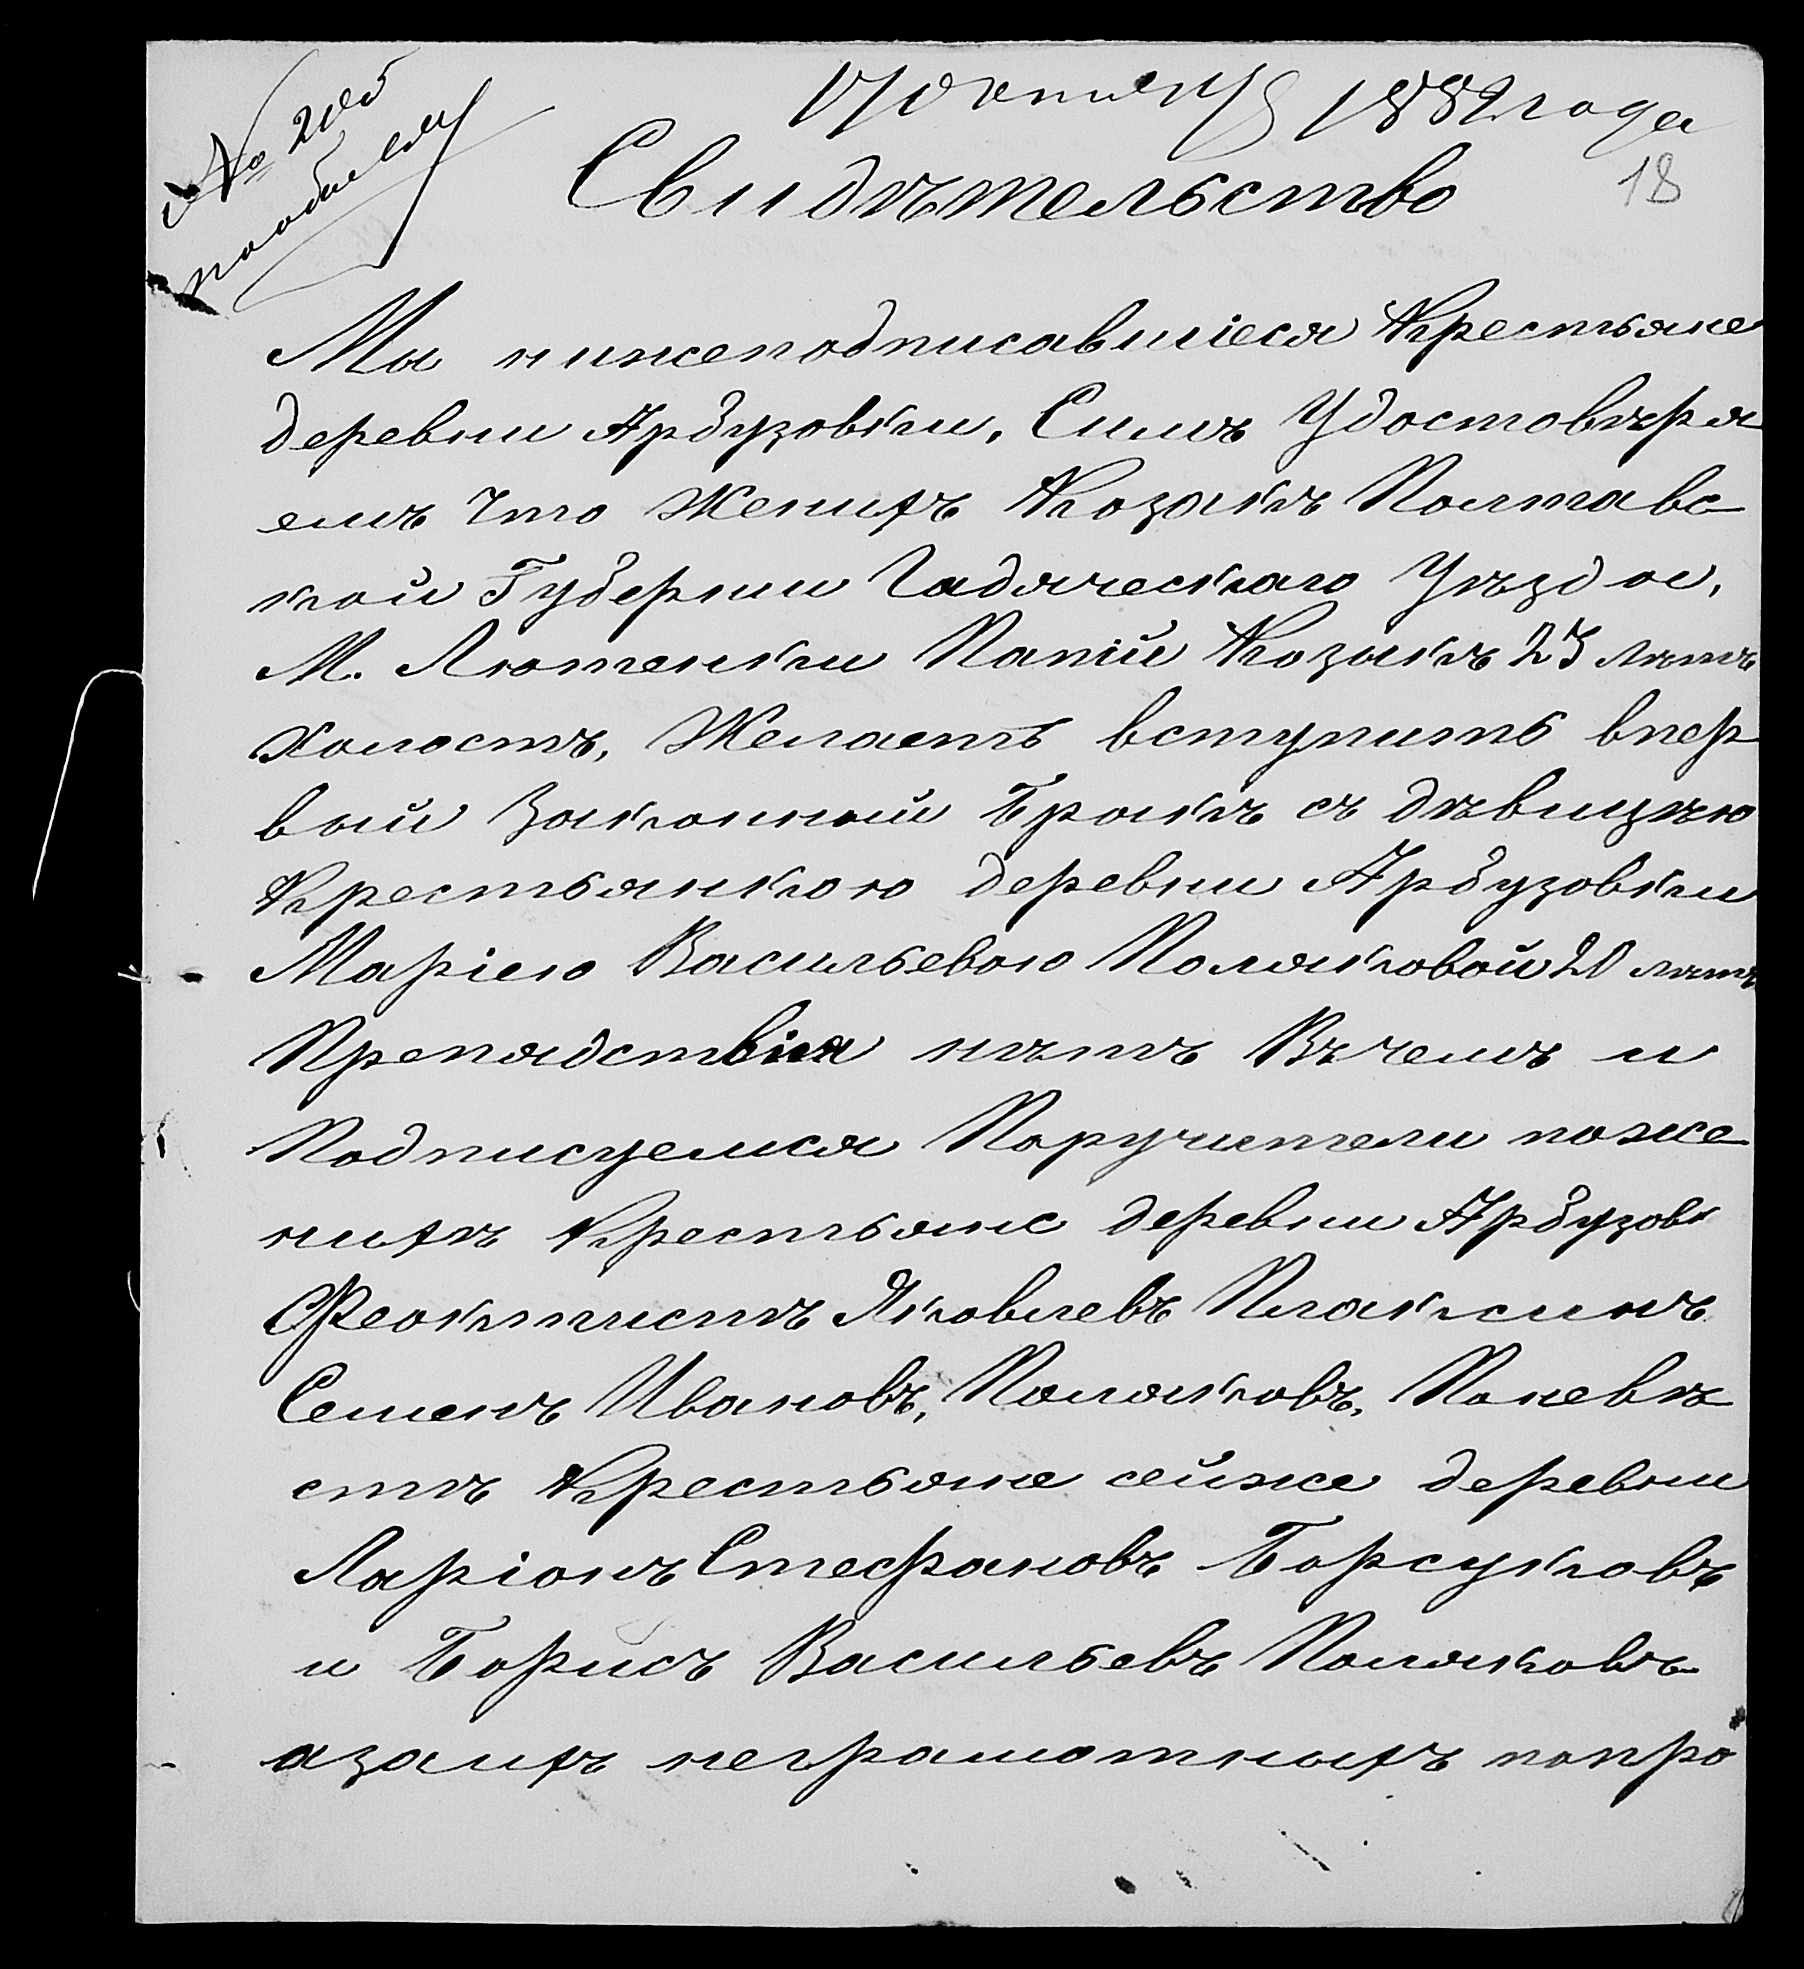 17 октября 1882 года
18
Свидѣтельство
Мы нижеподписавшіеся Крестьяне
деревни Арбузовки, Симъ Удостовѣря
емъ Что Женихъ Козакъ Полтавс
кой Губерніи Гадяческаго Уѣзда,
М. Лютенки Патій Козакъ 23 лѣтъ
холостъ, Желаетъ вступить впер
вый Законный Бракъ съ дѣвицѣю
Крестьянкою деревни Арбузовки
Маріею Васильевою Поляковой 20 лѣтъ
Препядствія нѣтъ Въ чемъ и
Подписуемся Поручители поже
нихѣ Крестьяне деревни Арбузовк
Феоктистъ Яковлевъ Плаксинъ
Семенъ Ивановъ, Поляковъ, Поневѣ
стѣ Крестьяне сейже деревни
Ларіонъ Стефановъ Борсуковъ
и Борисъ Васильевъ Поляковъ
азаихъ неграмотныхъ попро